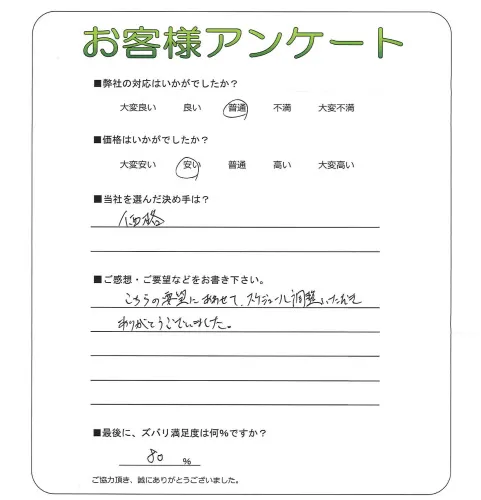 お客様アンケート
■弊社の対応はいかがでしたか？
大変良い 良い 普通 不満 大変不満
■価格はいかがでしたか？
大変安い 安い 普通 高い 大変高い
■当社を選んだ決め手は？
価格
■ご感想・ご要望などをお書き下さい。
こちらの要望にあわせて、スケジュール調整いただき
ありがとうございました。
■最後に、ズバリ満足度は何%ですか？
80 %
ご協力頂き、誠にありがとうございました。